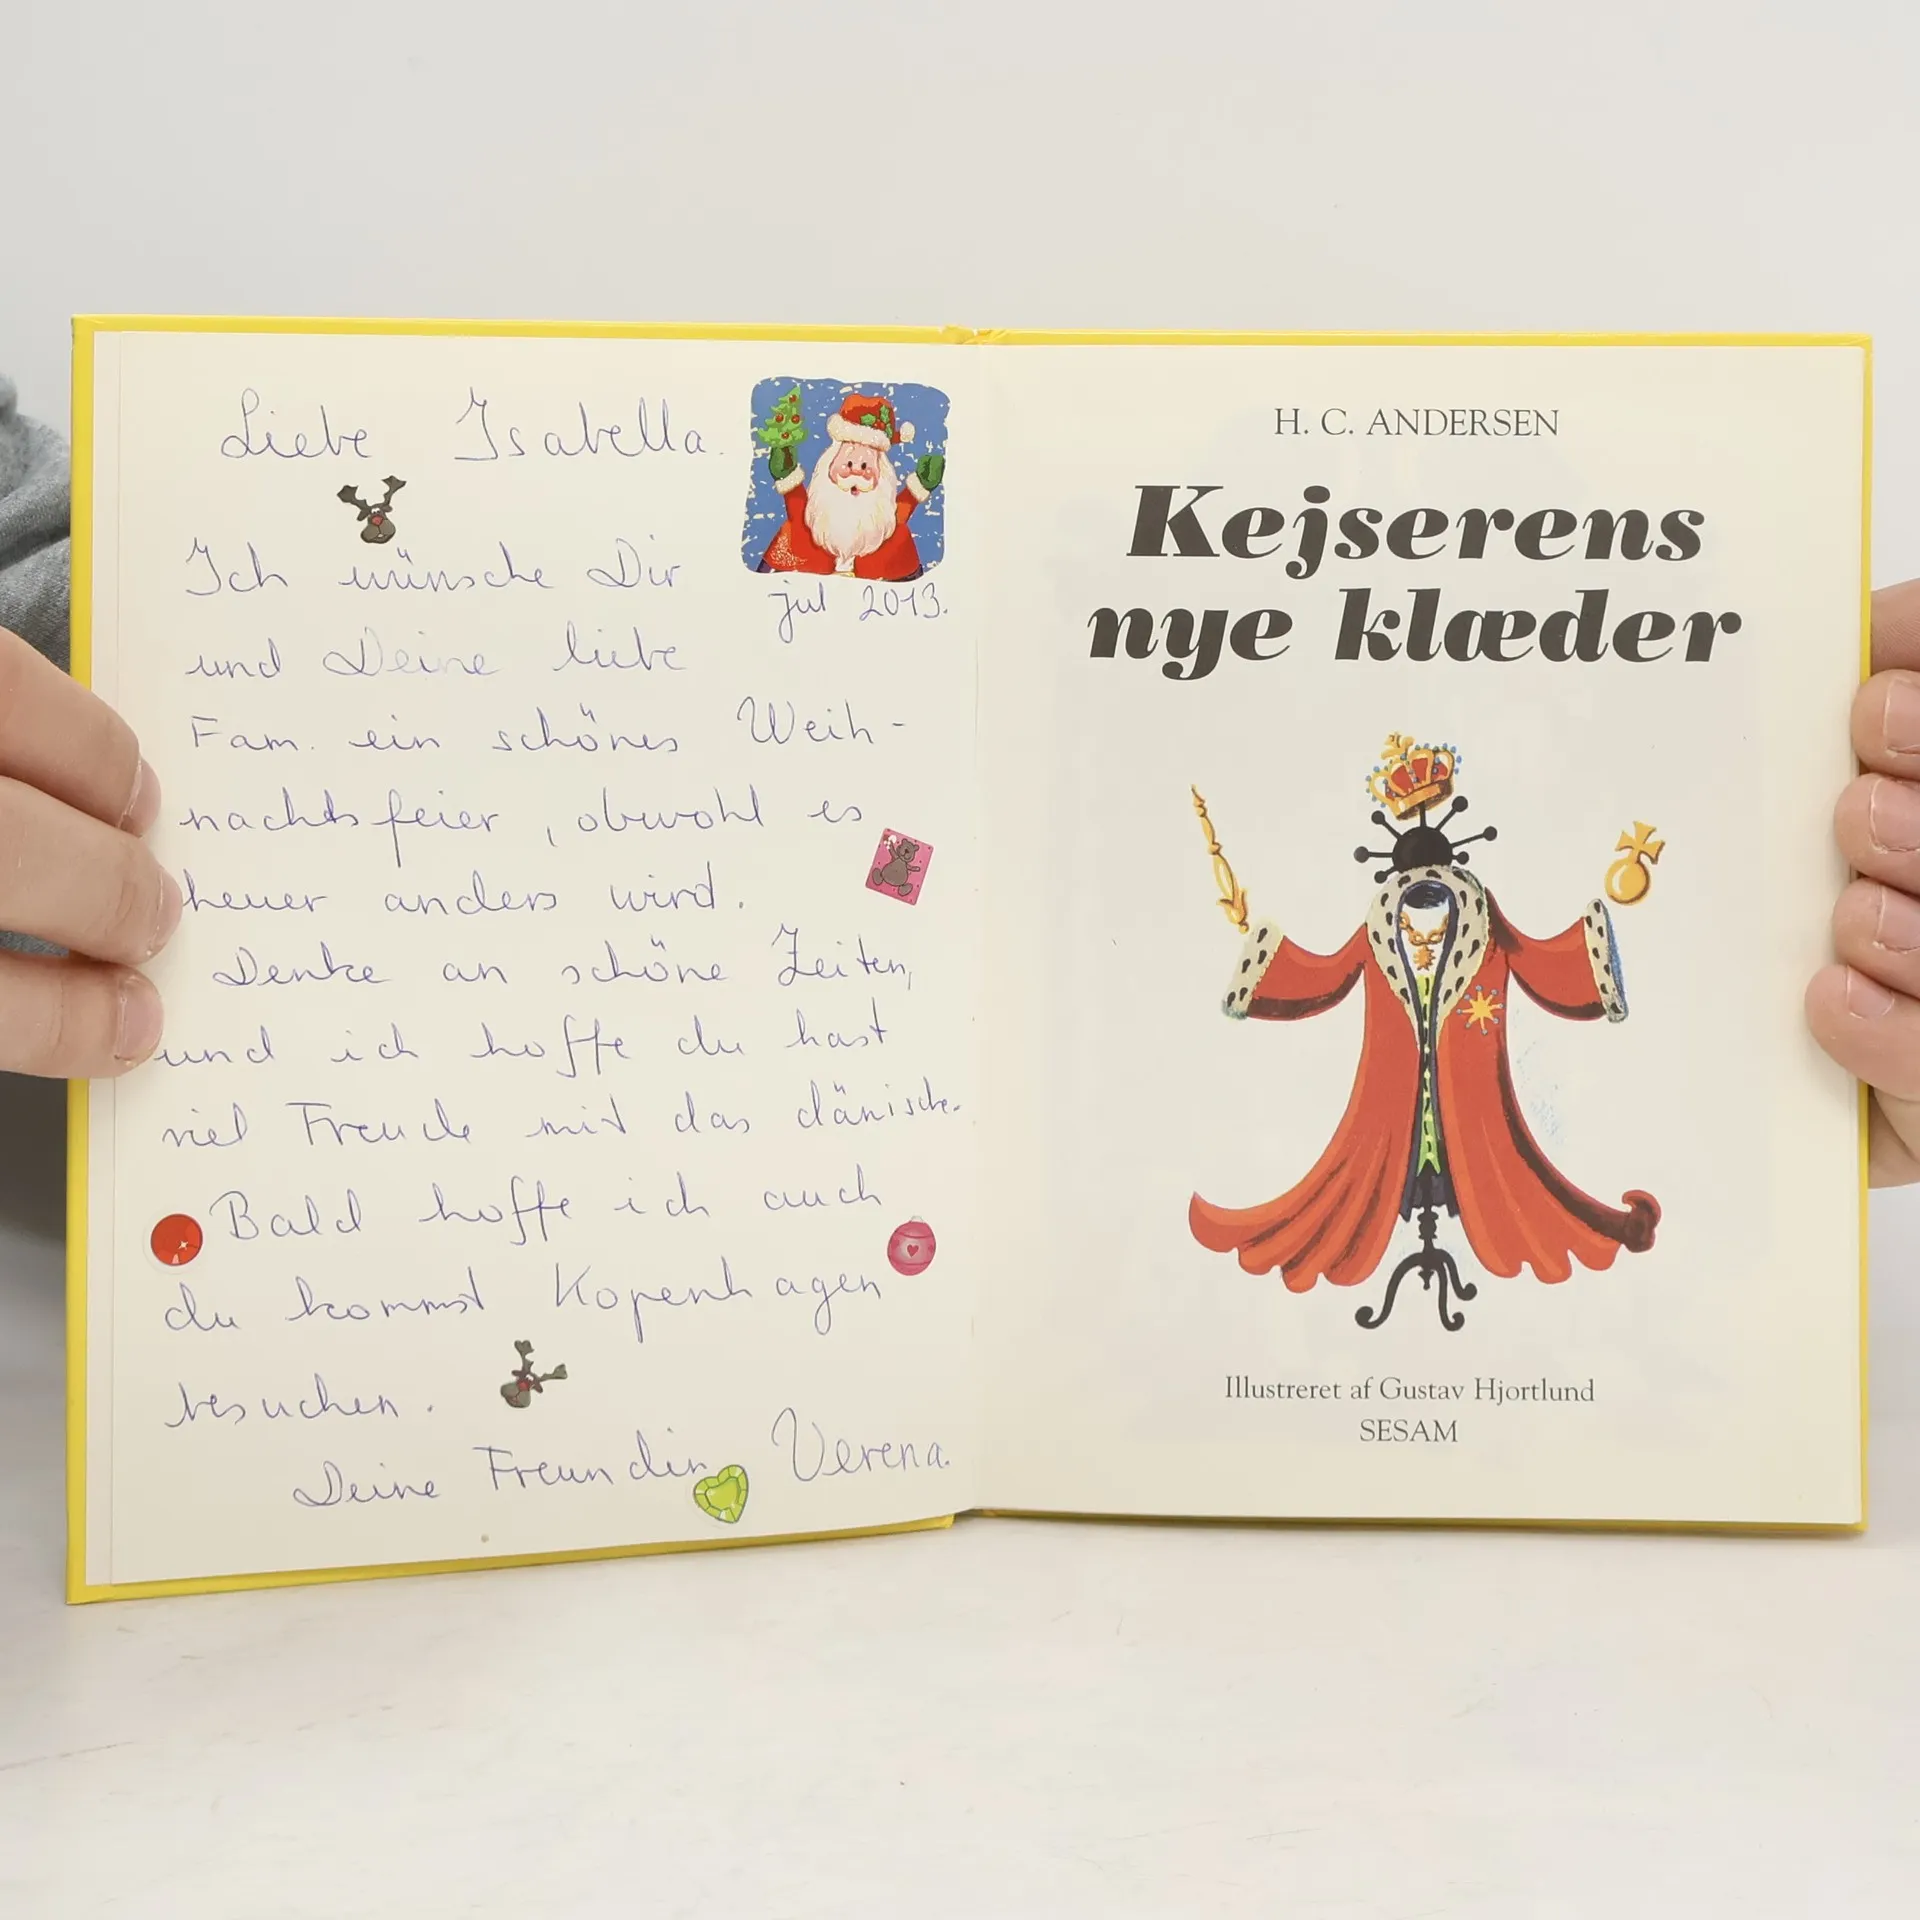 Liebe Isabella.
jul 2013.
Ich wünsche Dir
und Deine liebe
Fam. ein schönes Weih-
nachtsfeier, obwohl es
heuer anders wird.
Denke an schöne Zeiten,
und ich hoffe du hast
viel Freude mit das dänische.
Bald hoffe ich auch
du kommst Kopenhagen
besuchen.
Deine Freundin Verena.
H. C. ANDERSEN
Kejserens
nye klæder
Illustreret af Gustav Hjortlund
SESAM